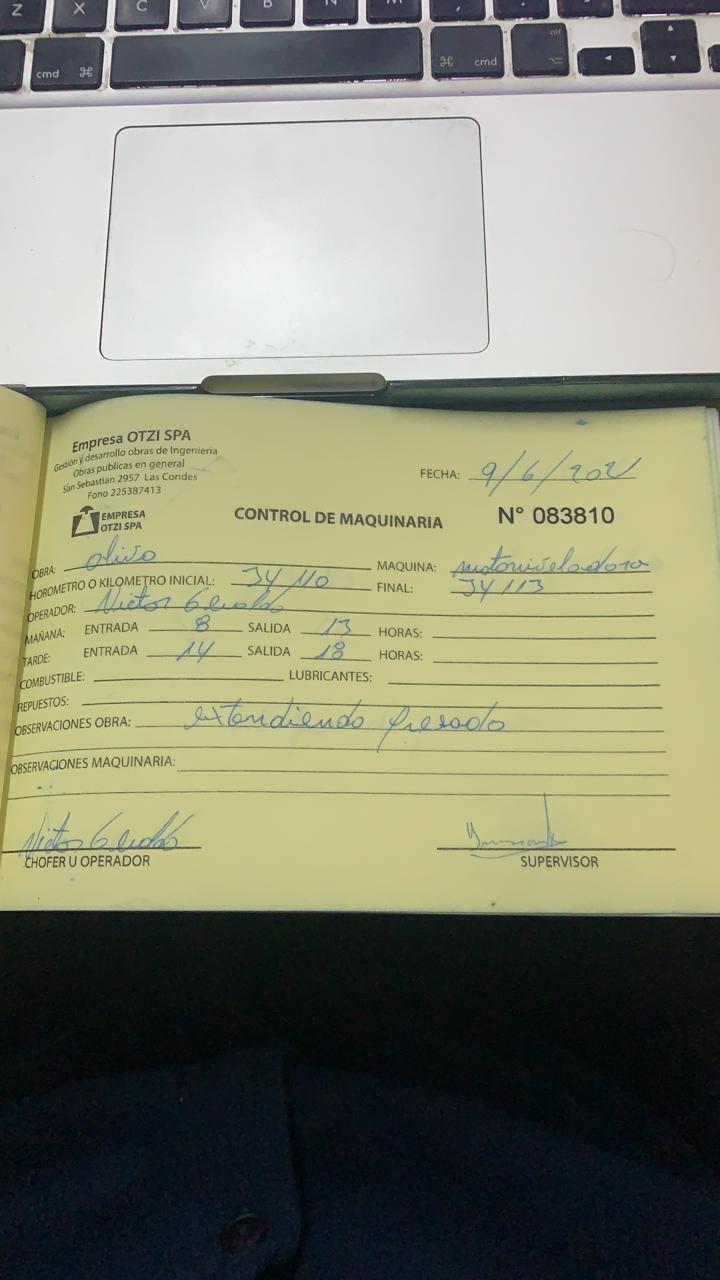 Z X C V B N M , . /
cmd ⌘ ⌘ cmd alt ⌥ ◄ ▲ ▼
Empresa OTZI SPA
Gestión y desarrollo obras de Ingeniería
Obras publicas en general
San Sebastian 2957 Las Condes
Fono 225387413
FECHA: 9/6/2021
EMPRESA OTZI SPA
CONTROL DE MAQUINARIA
N° 083810
OBRA: olivo MAQUINA: motoniveladora
HOROMETRO O KILOMETRO INICIAL: 34 110 FINAL: 34 113
OPERADOR: Victor
MAÑANA: ENTRADA 8 SALIDA 13 HORAS:
TARDE: ENTRADA 14 SALIDA 18 HORAS:
COMBUSTIBLE: LUBRICANTES:
REPUESTOS:
OBSERVACIONES OBRA: extendiendo
OBSERVACIONES MAQUINARIA:
Victor
CHOFER U OPERADOR SUPERVISOR